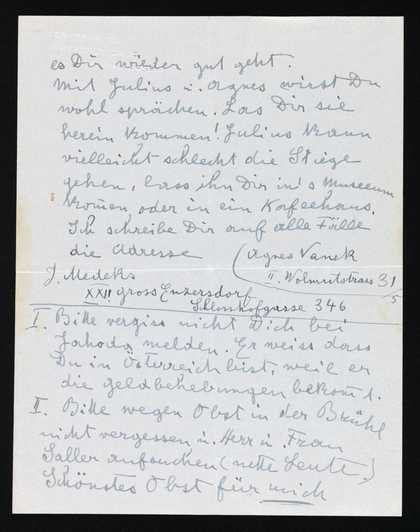 es Dir wieder gut geht.
Mit Julius u. Agnes wirst Du
wohl sprächen. Las Dir sie
herein kommen! Julius kann
vielleicht schlecht die Stiege
gehen, lass ihn Dir in's Museeum
komen oder in ein Kafeehaus.
Ich schreibe Dir auf alle Fälle
die Adresse (Agnes Vanek
II. Wolmutstrass 31/5
J. Medeks
XXII gross Enzersdorf
Schlosshofgasse 346
I. Bitte vergiss nicht Dich bei
Jahoda melden. Er weiss dass
Du in Österreich bist, weil er
die geldbehebungen bekomt.
II. Bitte wegen Obst in der Brühl
nicht vergessen u. Herr u. Frau
Saller aufsuchen (nette Leute)
Schönstes Obst für mich